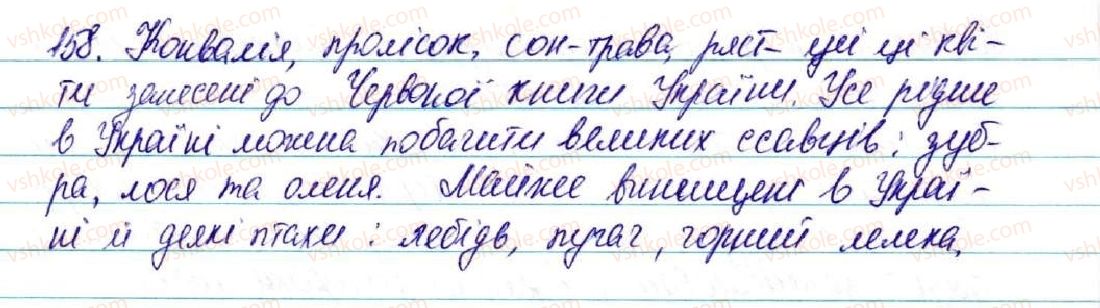 158. Конвалія, пролісок, сон-трава, ряст - усі ці кві-
ти занесені до Червоної книги України. Усе рідше
в Україні можна побачити великих ссавців: зуб-
ра, лося та оленя. Майже винищені в Украї-
ні й деякі птахи: лебідь, пугач, чорний лелека.